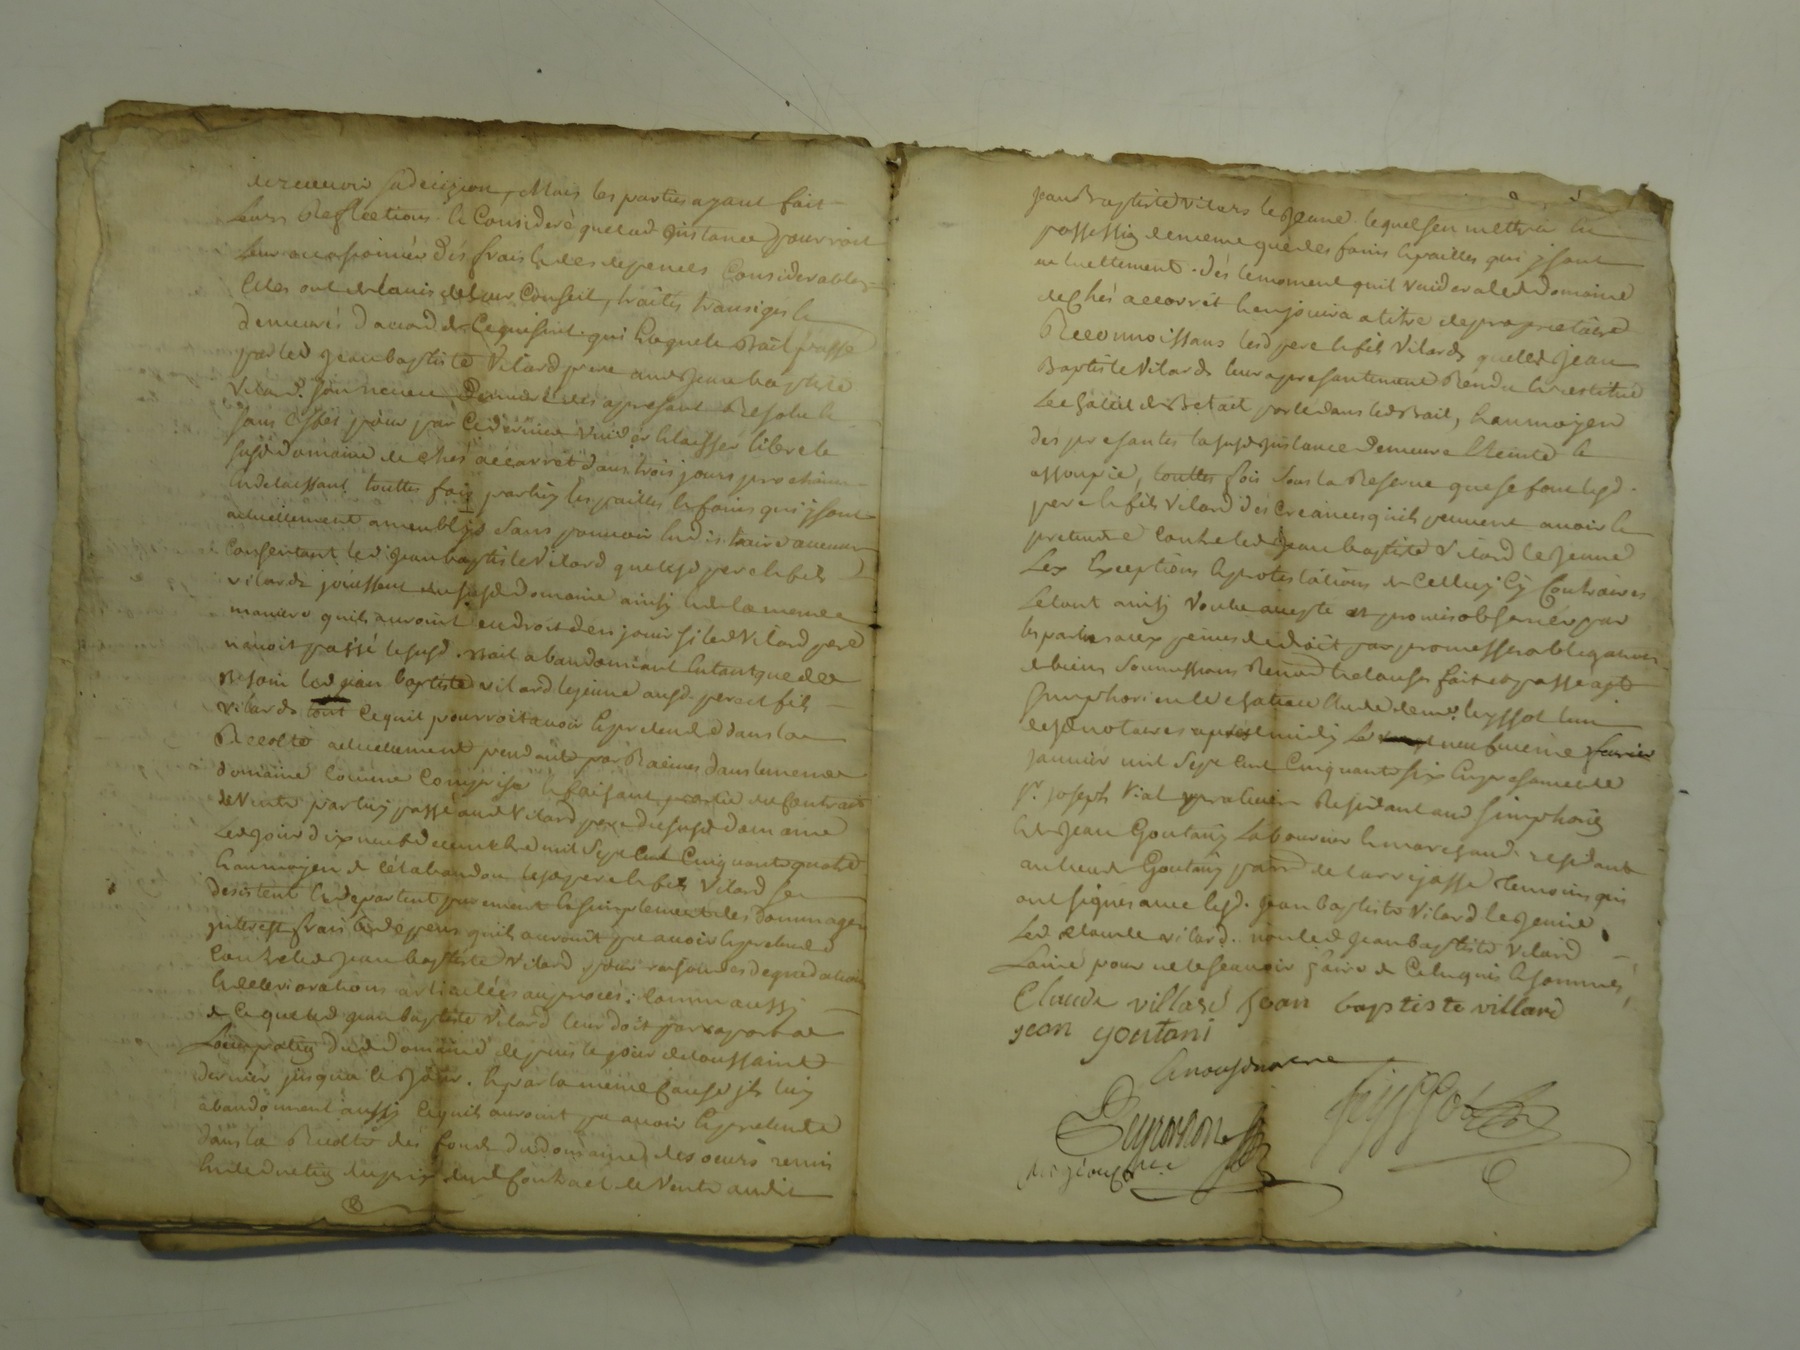 de recevoir sa decizion, Mais les parties ayant fait
Leurs Reflections & Consideré que lad instance pourroit
Leur occasionner des frais & des depences Considerables
Elles ont de lauis de leur Conseil, traités transigés &
demeurés daccord de Ce qui suit. qui Est que le Bail passé
par led Jean baptiste Vilard pere aud Jean baptiste
Vilard son neveu demeure des apresant Resolu &
sans Effet pour par Ce dernier Vuider & laisser libre le
susd domaine de chés accarrêt dans trois jours prochains
En delaissant touttes fois par luy les pailles & foins qui y sont
actuellement sans pouvoir En distraire aucune
Consentant led Jean baptiste Vilard que lesd pere & fils
vilards jouissent du susd Domaine ainsy & de la meme
maniere quils auroint Eu droit den jouir si led Vilard pere
n'avoit passé le susd. Bail abandonnant En tant que de
Besoin led jean baptiste vilard le jeune ausd. pere et fils
vilards tout Ce quil pourroit avoir & pretendre dans la
Recolte actuellement pendante par Racines dans le meme
domaine Comme Comprise & faisant partie du Contract
de Vente par luy passé aud Vilard pere du susd domaine
Led jour dix neuf decembre mil Sept Cent Cinquante quatre
& au moyen de Cet abandon lesd pere & fils Vilard se
desistent & se departent purement & simplement des dommages
jnterest frais & depens quils auroint pu avoir & pretendre
Contre led Jean baptiste Vilard pour raison des degradations
& deteriorations articulées au procès; Comme aussy
de Ce que led jean baptiste Vilard leur doit par raport a
Loccupation dud domaine depuis le jour de toussaint
dernier jusqua Ce jour. & par la même Cause jls luy
abandonnent aussy Ce quils auroint pu avoir & pretendre
dans la Recolte des fonds du domaine des oeurs remis
En deduction du prix dud Contract de Vente audit
Jean Baptiste Vilars le Jeune lequel sen mettra En
possession de meme que des foins & pailles qui y sont
actuellement. dès le moment quil vuidera led domaine
de chés accarrêt & en jouira a titre de proprietaire
Reconnoissans lesd pere & fils Vilards que led Jean
Baptiste Vilards leur a presantement Rendu & restitué
Le de Betail porté dans led Bail, & au moyen
des presantes la susd jnstance demeure Eteinte &
assoupie, touttes fois sous la Reserve que se font lesd.
pere & fils Vilard des Creances quils peuvent avoir &
pretendre Contre led Jean baptiste Vilard le Jeune
Les Exceptions & protestations de Celluy Cy Contraires
Le tout ainsy Voulu accepté et promis observer par
les parties aux peines de droit par promesses obligations
de biens soumissions Renond & clauses fait et passé a St
simphorien le chateau Etude de me. Leyssot lun
desd notaires après midy Le neufvieme fevrier
Janvier mil Sept Cent Cinquante six En presance de
sr. joseph Vial praticien Residant aud simphorien
& de Jean Goutany Laboureur & marchand residant
au lieu de Goutany parr de larrejasse temoins qui
ont signés avec lesd. jean baptiste Vilard le Jeune
Led claude vilard. non led Jean baptiste Vilard
Lainé pour ne le scavoir faire de Ce Enquis & sommés
Claude villard jean baptiste villard
jean goutani
Leyssot